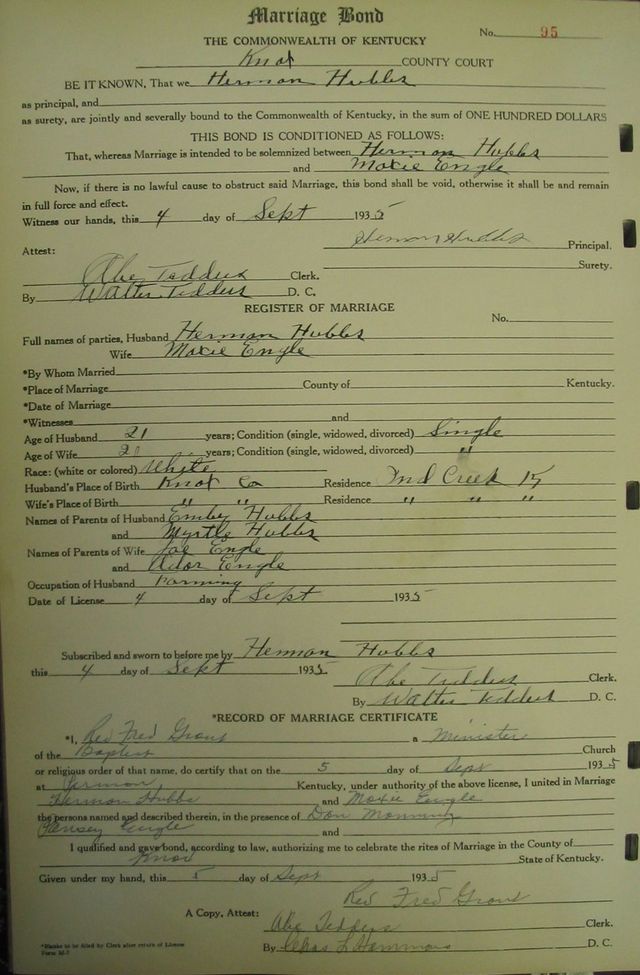 Marriage Bond
No. 95
THE COMMONWEALTH OF KENTUCKY
Knox COUNTY COURT
BE IT KNOWN, That we Herman Hubbs
as principal, and
as surety, are jointly and severally bound to the Commonwealth of Kentucky, in the sum of ONE HUNDRED DOLLARS
THIS BOND IS CONDITIONED AS FOLLOWS:
That, whereas Marriage is intended to be solemnized between Herman Hubbs
and Moxie Engle
Now, if there is no lawful cause to obstruct said Marriage, this bond shall be void, otherwise it shall be and remain
in full force and effect.
Witness our hands, this 4 day of Sept 1935
Herman Hubbs Principal.
Attest:
Surety.
Abe Tedders Clerk.
By Walter Tedders D. C.
REGISTER OF MARRIAGE
No.
Full names of parties, Husband Herman Hubbs
Wife Moxie Engle
*By Whom Married
*Place of Marriage County of Kentucky.
*Date of Marriage
*Witnesses and
Age of Husband 21 years; Condition (single, widowed, divorced) Single
Age of Wife years; Condition (single, widowed, divorced) "
Race: (white or colored) White
Husband's Place of Birth Knox Co Residence Creek Ky
Wife's Place of Birth " " Residence " " "
Names of Parents of Husband Hubbs
and Myrtle Hubbs
Names of Parents of Wife Joe Engle
and Engle
Occupation of Husband Farming
Date of License 4 day of Sept 1935
Subscribed and sworn to before me by Herman Hubbs
this 4 day of Sept 1935
Abe Tedders Clerk.
By Walter Tedders D. C.
*RECORD OF MARRIAGE CERTIFICATE
*I, Rev Fred a Minister
of the Baptist Church
or religious order of that name, do certify that on the 5 day of Sept 1935
at Kentucky, under authority of the above license, I united in Marriage
Herman Hubbs and Moxie Engle
the persons named and described therein, in the presence of Don
Engle and
I qualified and gave bond, according to law, authorizing me to celebrate the rites of Marriage in the County of
Knox State of Kentucky.
Given under my hand, this 5 day of Sept 1935
Rev Fred
A Copy, Attest:
Abe Tedders Clerk.
By Chas L Hammons D. C.
*Blanks to be filled by Clerk after return of License